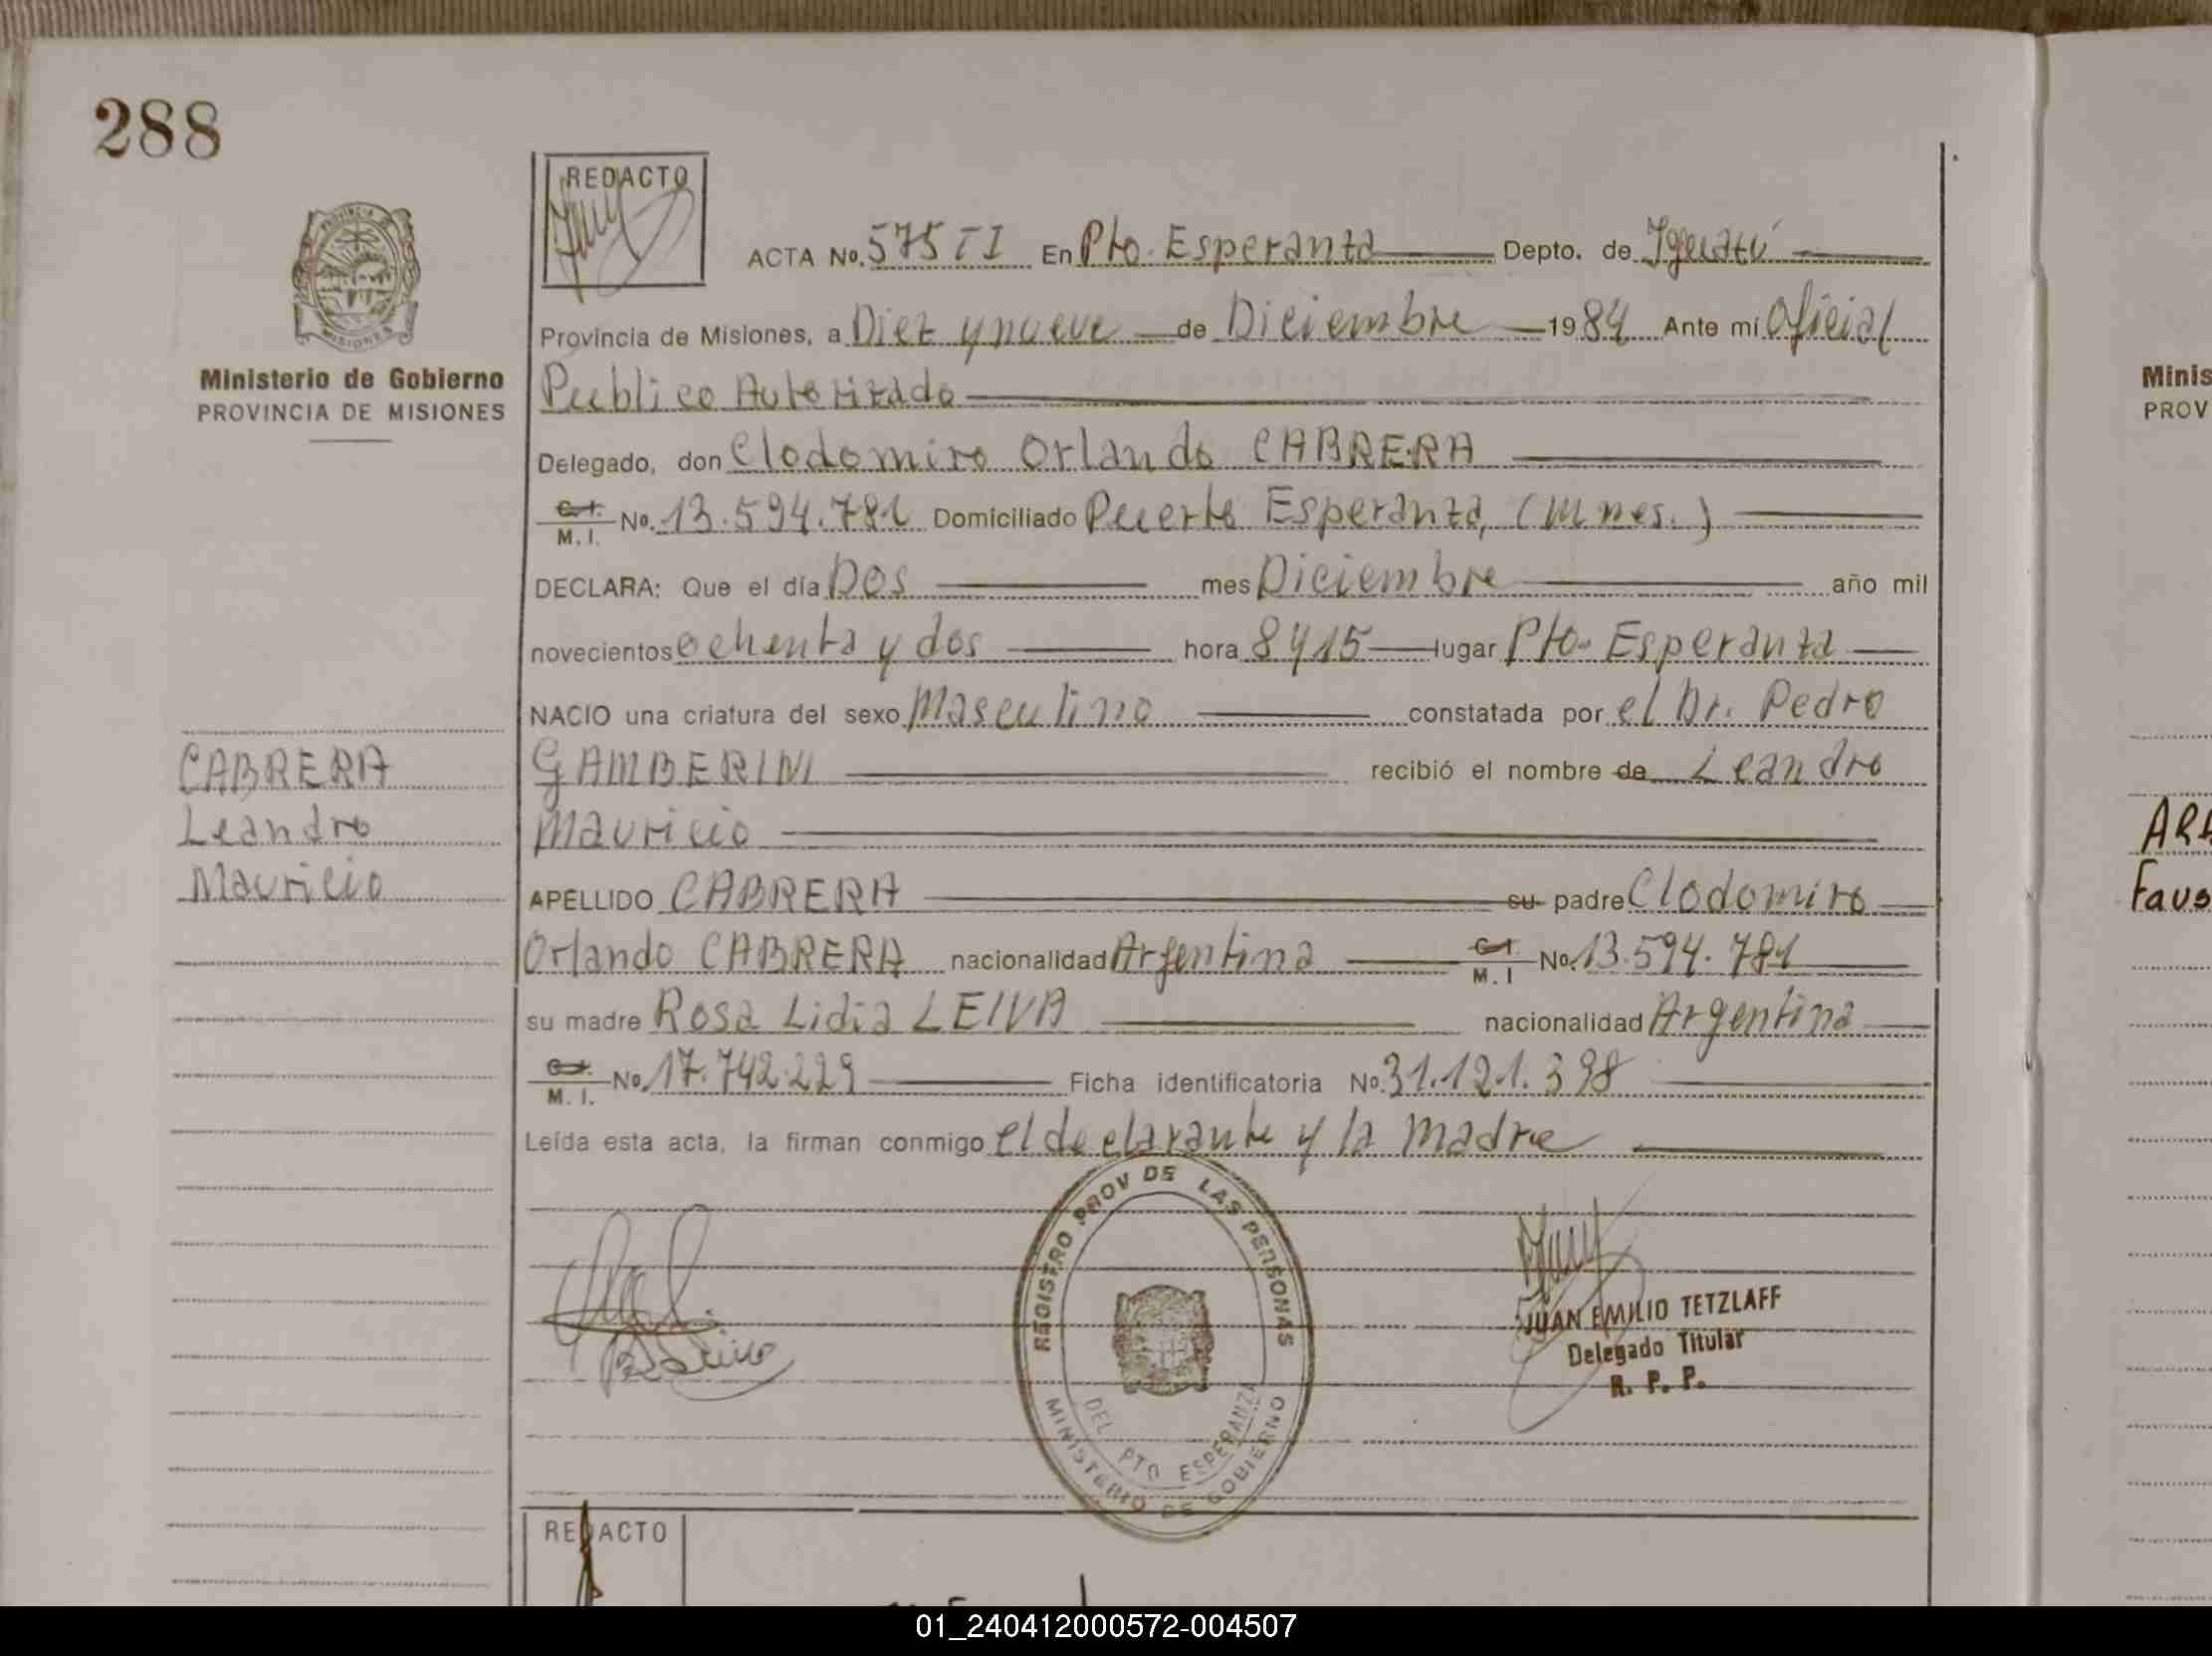 288
REDACTO
ACTA No. 575 TI En Pto. Esperanza Depto. de Iguazú
Provincia de Misiones, a Diez y nueve de Diciembre 1984 Ante mí Oficial
Publico Autorizado
Delegado, don Clodomiro Orlando CABRERA
C.I. M.I. No. 13.594.781 Domiciliado Puerto Esperanza, (Mnes.)
DECLARA: Que el día Dos mes Diciembre año mil
novecientos ochenta y dos hora 8 y 15 lugar Pto. Esperanza
NACIO una criatura del sexo Masculino constatada por el Dr. Pedro
GAMBERINI recibió el nombre de Leandro
Mauricio
APELLIDO CABRERA su padre Clodomiro
Orlando CABRERA nacionalidad Argentina C.I. M.I No. 13.594.781
su madre Rosa Lidia LEIVA nacionalidad Argentina
C.I. M.I. No. 17.742.229 Ficha identificatoria No. 31.121.398
Leída esta acta, la firman conmigo el declarante y la Madre
PROVINCIA DE MISIONES
Ministerio de Gobierno
PROVINCIA DE MISIONES
CABRERA
Leandro
Mauricio
REGISTRO PROV DE LAS PERSONAS
DEL PTO ESPERANZA
MINISTERIO DE GOBIERNO
JUAN EMILIO TETZLAFF
Delegado Titular
R. P. P.
REDACTO
Minis
PROV
Faus
01_240412000572-004507